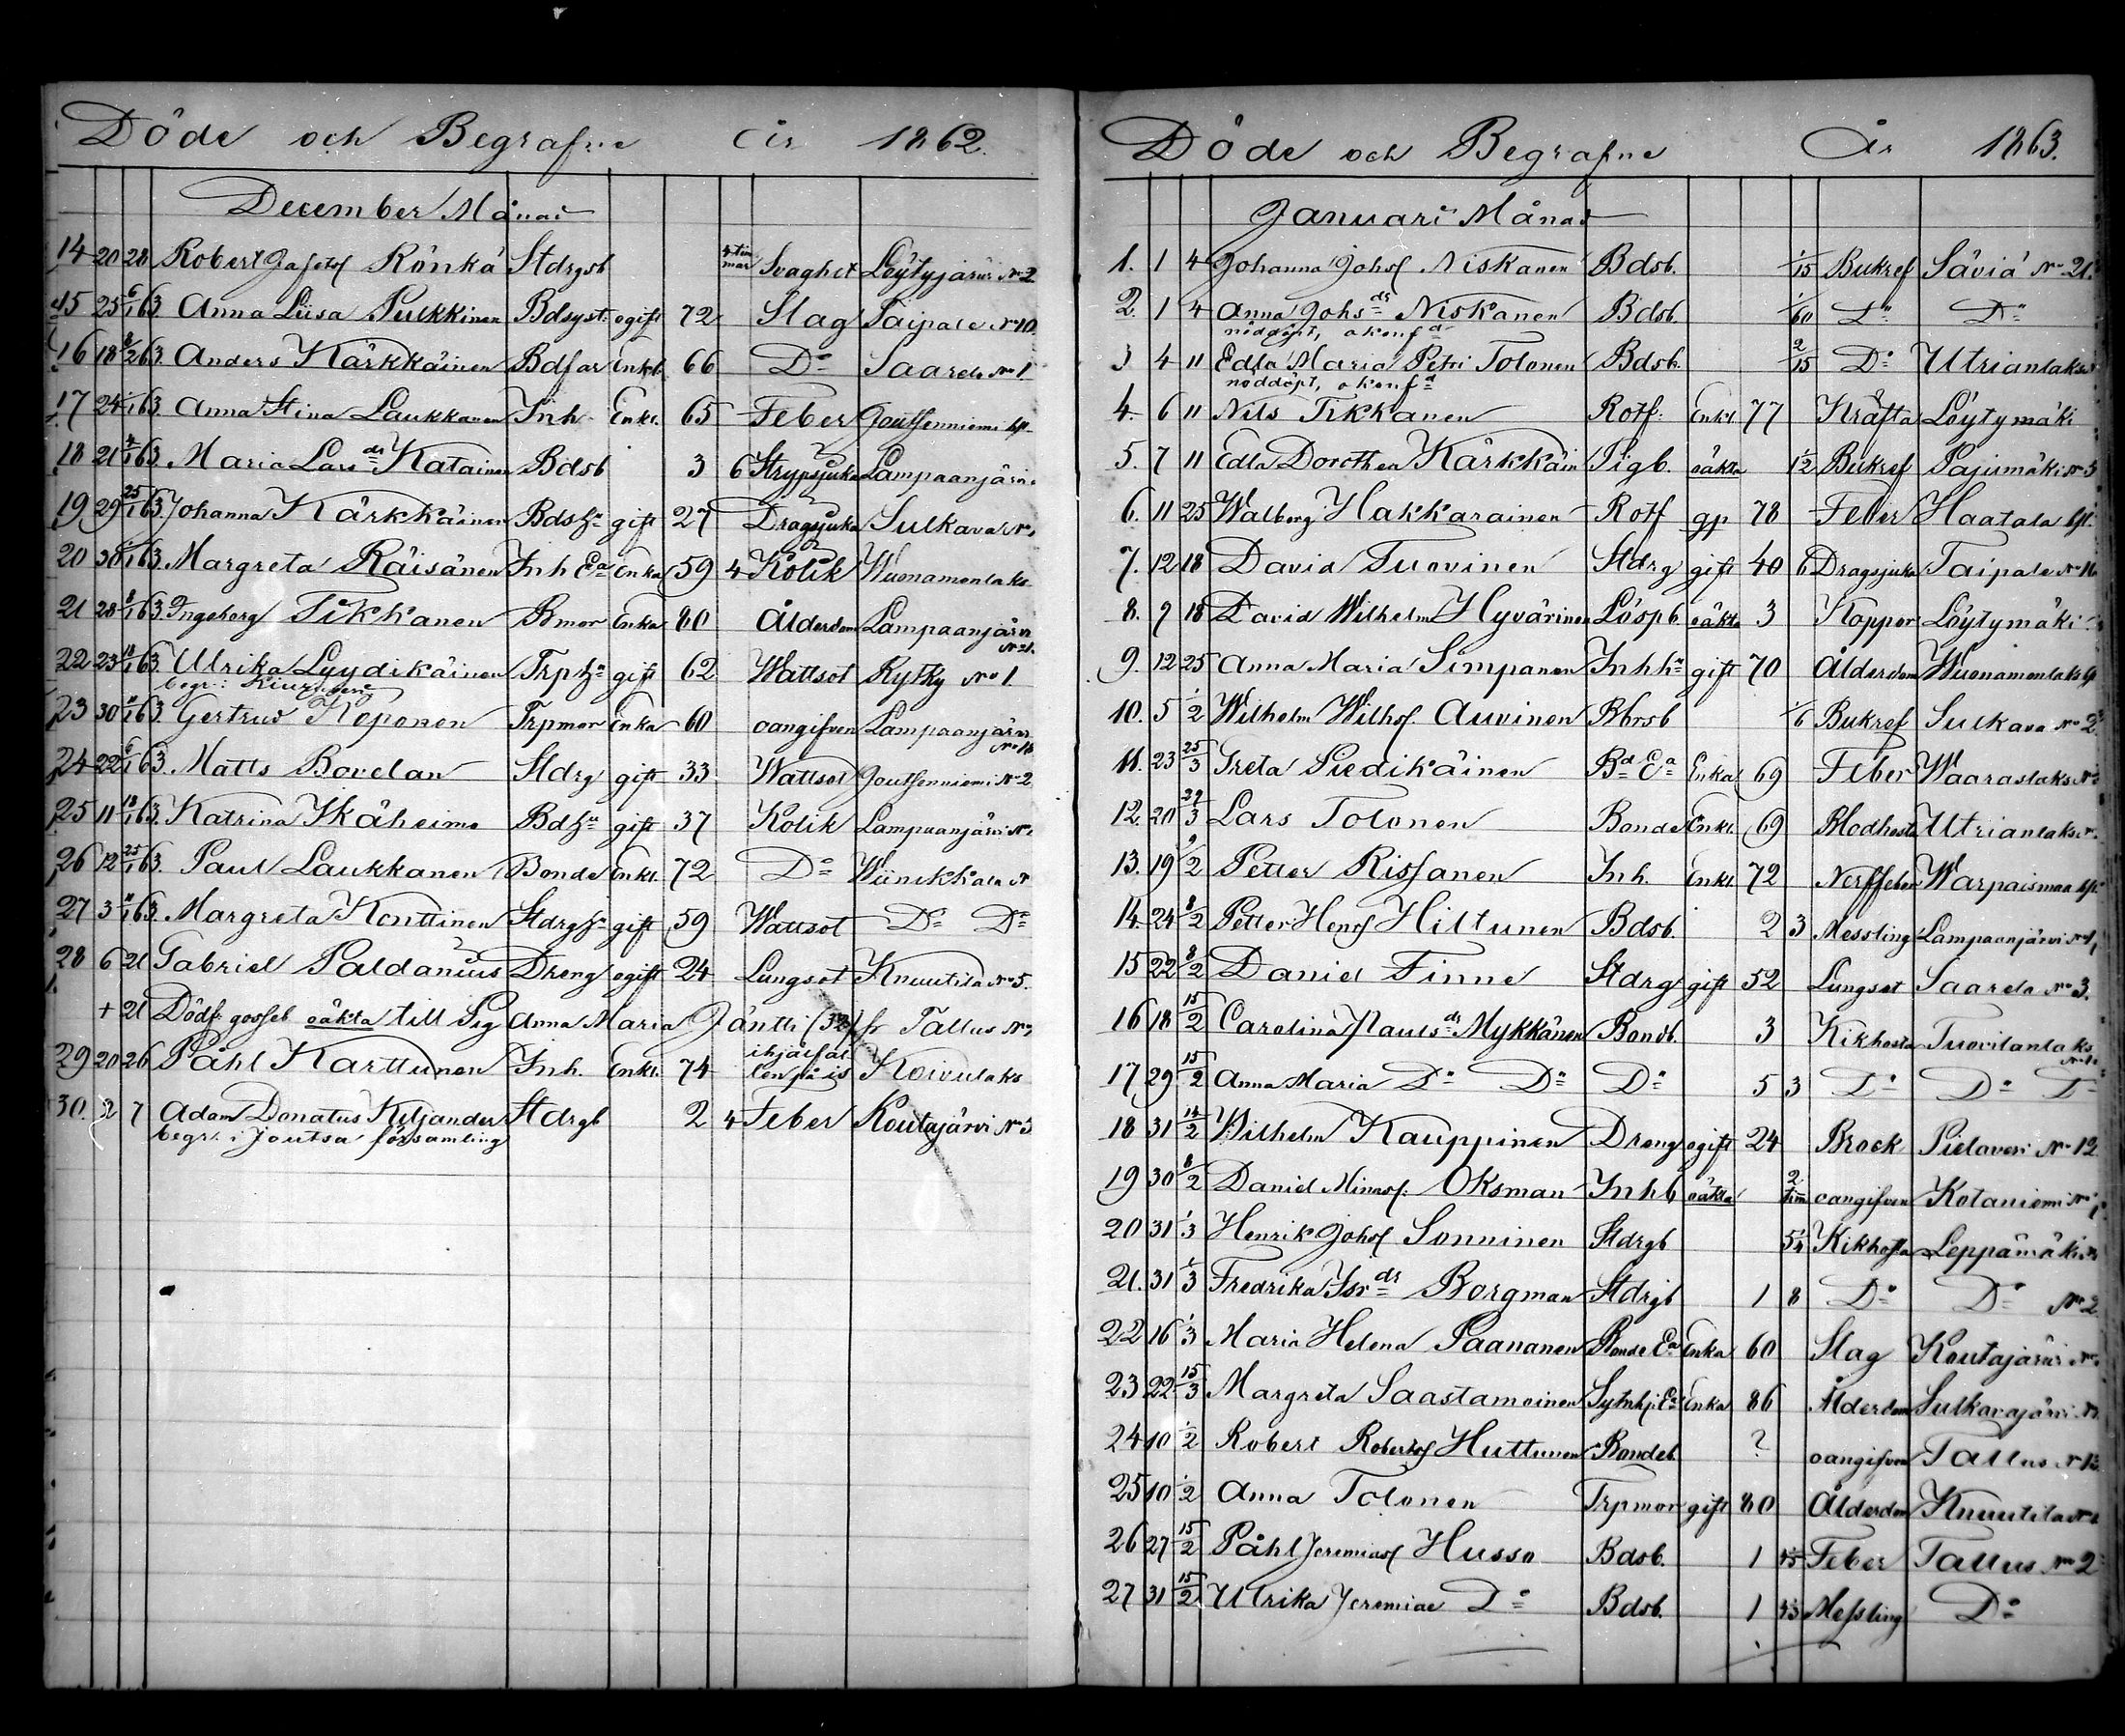 Döde och Begrafne år 1862.
December Månad
14 20 28 Robert Jafetsf Rönkä Stdrgsb 4 tim mar Svaghet Löytyjärvi No 2
15 25 6/1 63. Anna Liisa Pulkkinen Bdsyst: ogift 72 Slag Taipale No 10
16 18 8/2 63. Anders Kärkkäinen Bdfar Enkl. 66 Do Saarela No 1
17 24 63. Anna Stina Laukkanen Inh Enka. 65 Feber Joutsenniemi
18 21 4/1 63. Maria Lars ds Katainen Bdsb 3 6 Strypsjuka Lampaanjärvi
19 29 25/1 63. Johanna Kärkkäinen Bdshu gift 27 Dragsjuka Sulkava No
20 30 63. Margreta Räisänen Inh Ea Enka 59 4 Kolik Wuonamonlaks
21 28 8/1 63. Ingeborg Tikkanen Bmor Enka 80 Ålderdom Lampaanjärvi No 21.
22 23 18/1 63. Ulrika Lyydikäinen Trphu gift 62 Wattsot Rytky No 1.
begr: i Kiuruvesi
23 30 63. Gertrud Koponen Trpmor Enka 60 oangifven Lampaanjärvi
24 22 6/1 63. Matts Bovelan Stdrg gift 33 Wattsot Joutsenniemi No 2
25 11 18/1 63. Katrina Ikäheimo Bdhu gift 37 Kolik Lampaanjärvi No
26 12 25/1 63. Paul Laukkanen Bonde Enkl. 72 Do Wiinikkala N
27 3 63. Margreta Konttinen Stdrghu gift 59 Wattsot Do Do
28 6 21 Gabriel Paldanius Dreng ogift 24 Lungsot Knuutila No 5.
+ 21 Dödf: gosseb oäkta till Pig Anna Maria Jäntti (32) fr Tallus No
29 20 26 Påhl Karttunen Inh. Enkl. 74 ihjälfallen på is Koivulaks
30. 2 7 Adam Donatus Kiljander Stdrgb 2 4 Feber Koutajärvi No 3
begr. i Joutsa församling
Döde och Begrafne År 1863.
Januari Månad
1. 1 4 Johanna Johsf Niskanen Bdsb. 1/15 Bukref Säviä No 21.
2. 1 4 Anna Johs ds Niskanen Bdsb. 1/60 Do Do
nöddöpt, o konfd
3 4 11 Edla Maria Petri Tolonen Bdsb. 2/15 Do Utrianlaks
nöddöpt, o konfd
4. 6 11 Nils Tikkanen Rotf: Enkl. 77 Kräfta Löytymäki
5. 7 11 Edla Dorothea Kärkkäin Pigb. oäkta 1/2 Bukref Pajumäki No 3
6. 11 25 Walborg Hakkarainen Rotf gp 78 Feber Haatala
7. 12 18 David Tuovinen Stdrg gift 40 6 Dragsjuka Taipale No 16
8. 9 18 David Wilhelm Hyvärinen Lösp b oäkta 3 Koppor Löytymäki
9. 12 25 Anna Maria Simpanen Inhhu gift 70 Ålderdom Wuonamonlaks
10. 5 1/2 Wilhelm Wilhsf. Auvinen Bbrsb 1/6 Bukref Sulkava No 2
11. 23 25/3 Greta Piedikäinen Bd Ea Enka 69 Feber Waaraslaks No
12. 20 29/3 Lars Tolonen Bonde Enkl. 69 Blodhosta Utrianlaks
13. 19 1/2 Petter Rissanen Inh. Enkl. 72 Nerffeber Warpaismaa
14. 24 8/2 Petter Henrsf Hiltunen Bdsb. 2 3 Messling Lampaanjärvi No 1
15 22 8/2 Daniel Finne Stdrg gift 52 Lungsot Saarela No 3.
16 18 15/2 Carolina Pauls ds Mykkänen Bondb. 3 Kikhosta Tuovilanlaks
17 29 15/2 Anna Maria Do Do Do 5 3 Do Do Do
18 31 14/2 Wilhelm Kauppinen Dreng ogift 24 Brock Pielavesi No 12
19 30 8/2 Daniel Minasf. Oksman Inhb oäkta 2 tim oangifven Kotaniemi No 1
20 31 1/3 Henrik Johsf Sonninen Stdrgb 5/4 Kikhosta Leppämäki No
21. 31 1/3 Fredrika Isr ds Borgman Stdrgb 1 8 Do Do No 2
22 16 1/3 Maria Helena Paananen Bonde Ea Enka 60 Slag Koutajärvi No
23 22 15/3 Margreta Saastamoinen Enka 86 Ålderdom Sulkavajärvi No
24 10 1/2 Robert Robertsf Huttunen Bondeb. ? oangifven Tallus No 13
25 10 1/2 Anna Tolonen Trpmor gift 80 Ålderdom Knuutila No
26 27 15/2 Påhl Jeremiasf Husso Bdsb. 1 Feber Tallus No 2
27 31 15/2 Ulrika Jeremiae Do Bdsb. 1 Messling Do